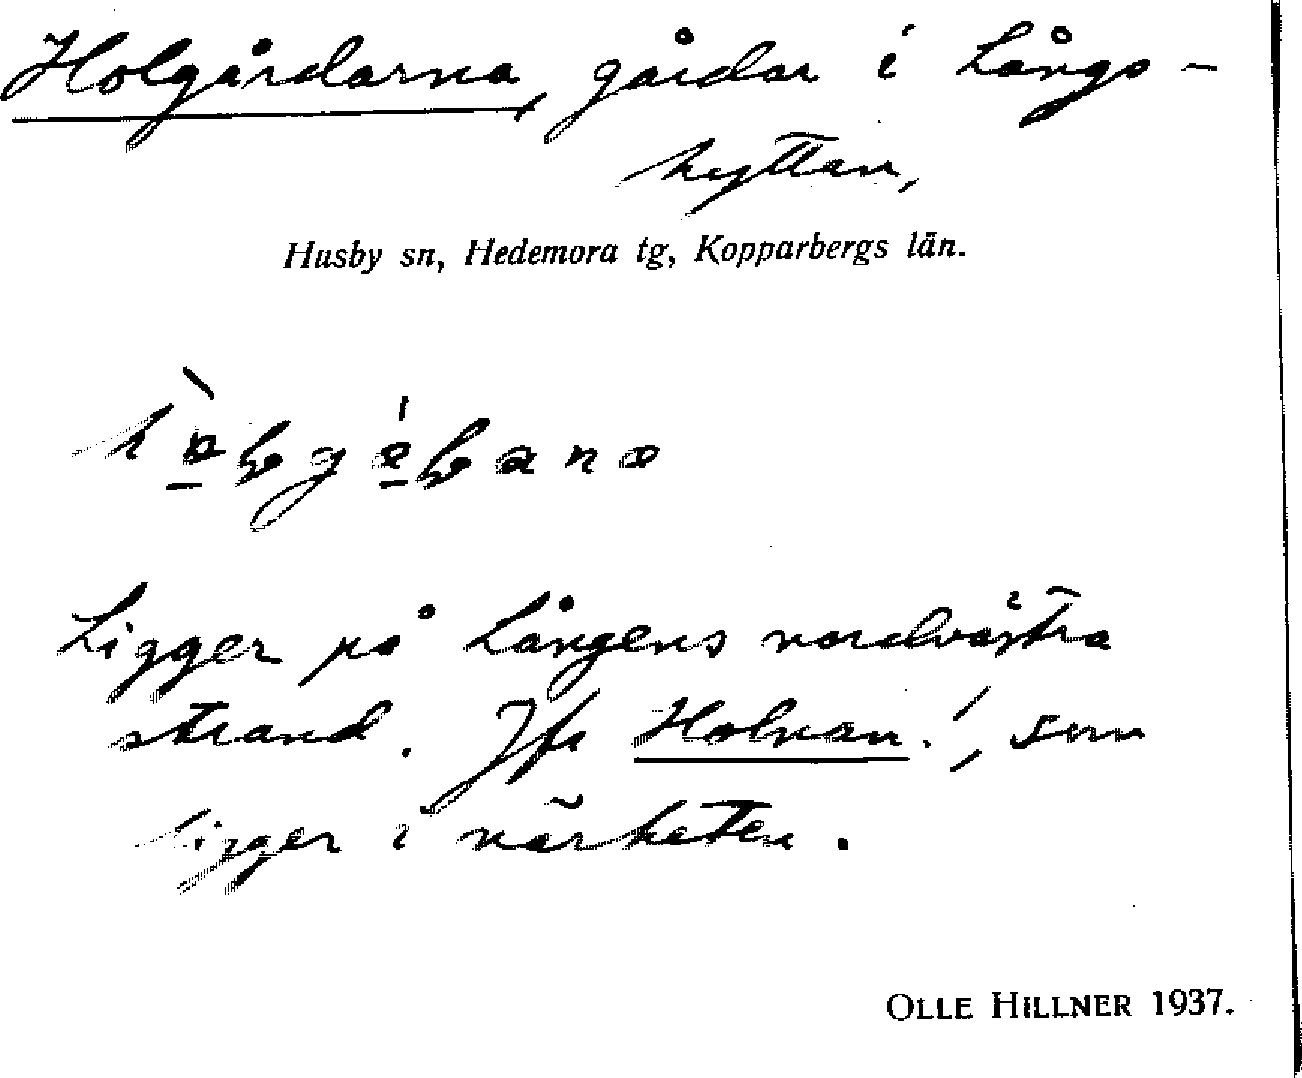 Holgårdarna, gårdar i Långs-
hyttan,
Husby sn, Hedemora tg, Kopparbergs län.
Ligger på Långens nordvästra
strand. Jfr Holvan!, som
ligger i närheten.
OLLE HILLNER 1937.